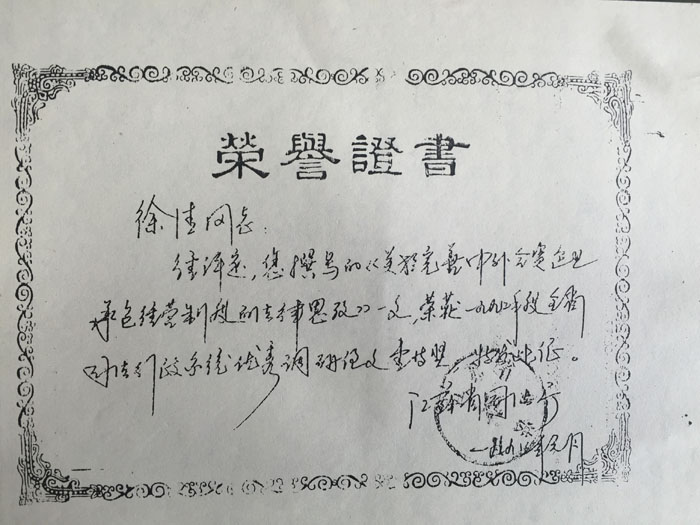 榮譽證書
徐佳同志:
经评定,您撰写的《关于完善中外合资企业
承包经营制度的法律思考》一文,荣获一九九二年度全省
司法行政系统优秀调研论文壹等奖 特发此证。
江苏省司法厅
一九九 年元月